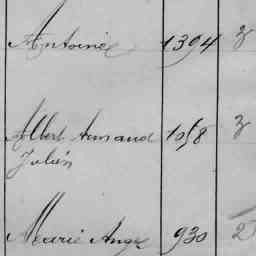 Antoine 1394 3
Albert Armand 1058 3
Julien
Marie Ange 930 2